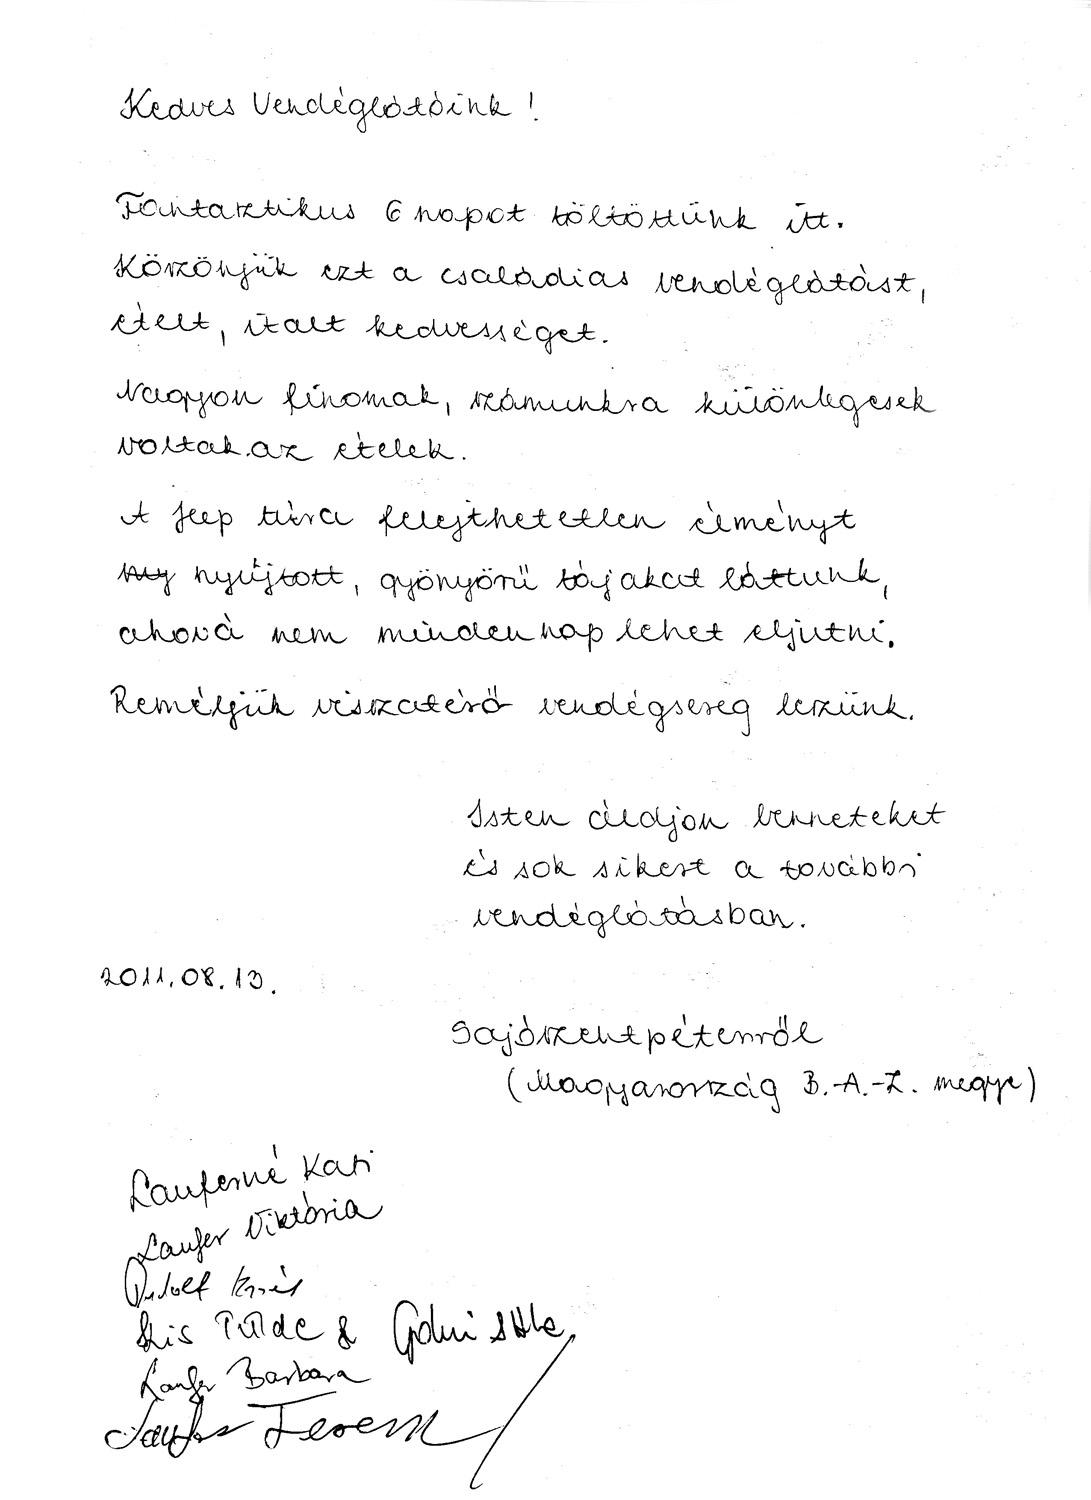 Kedves Vendéglátóink!
Fantasztikus 6 napot töltöttünk itt.
Köszönjük ezt a családias vendéglátást,
ételt, italt kedvességet.
Nagyon finomak, számunkra különlegesek
voltak az ételek.
A Jeep túra felejthetetlen élményt
ny nyújtott, gyönyörű tájakat láttunk,
ahová nem mindennap lehet eljutni.
Reméljük visszatérő vendégsereg leszünk.
Isten áldjon benneteket
és sok sikert a további
vendéglátásban.
2011.08.13.
Sajószentpéterről
(Magyarország B.-A.-Z. megye)
Lauferné Kati
Laufer Viktória
Rudolf
Kis Tünde &
Laufer Barbara
Laufer Ferenc